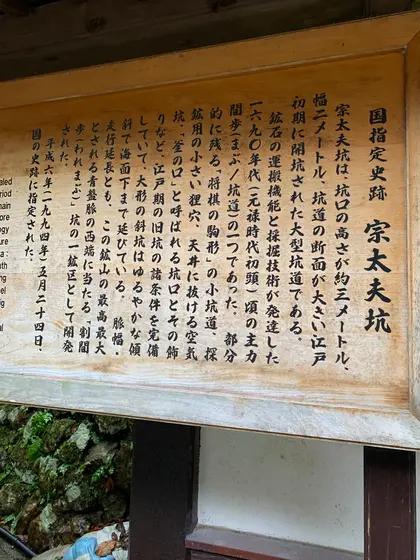 国指定史跡 宗太夫坑
宗太夫坑は、坑口の高さが約三メートル、
幅二メートル、坑道の断面が大きい江戸
初期に開坑された大型坑道である。
鉱石の運搬機能と採掘技術が発達した
一六九〇年代(元禄時代初頭)頃の主力
間歩(まぶ/坑道)の一つであった。 部分
的に残る「将棋の駒形」の小坑道、探
鉱用の小さい狸穴、天井に抜ける空気
坑、「釜の口」と呼ばれる坑口とその飾
りなど、江戸期の旧坑の諸条件を完備
していて、大形の斜坑はゆるやかな傾
斜で海面下まで延びている。 脈幅・
走行延長とも、この鉱山の最高最大
とされる青盤脈の西端に当たる、「割間
歩(われまぶ)」坑の一鉱区として開発
された。
平成六年(一九九四年)五月二十四日、
国の史跡に指定された。